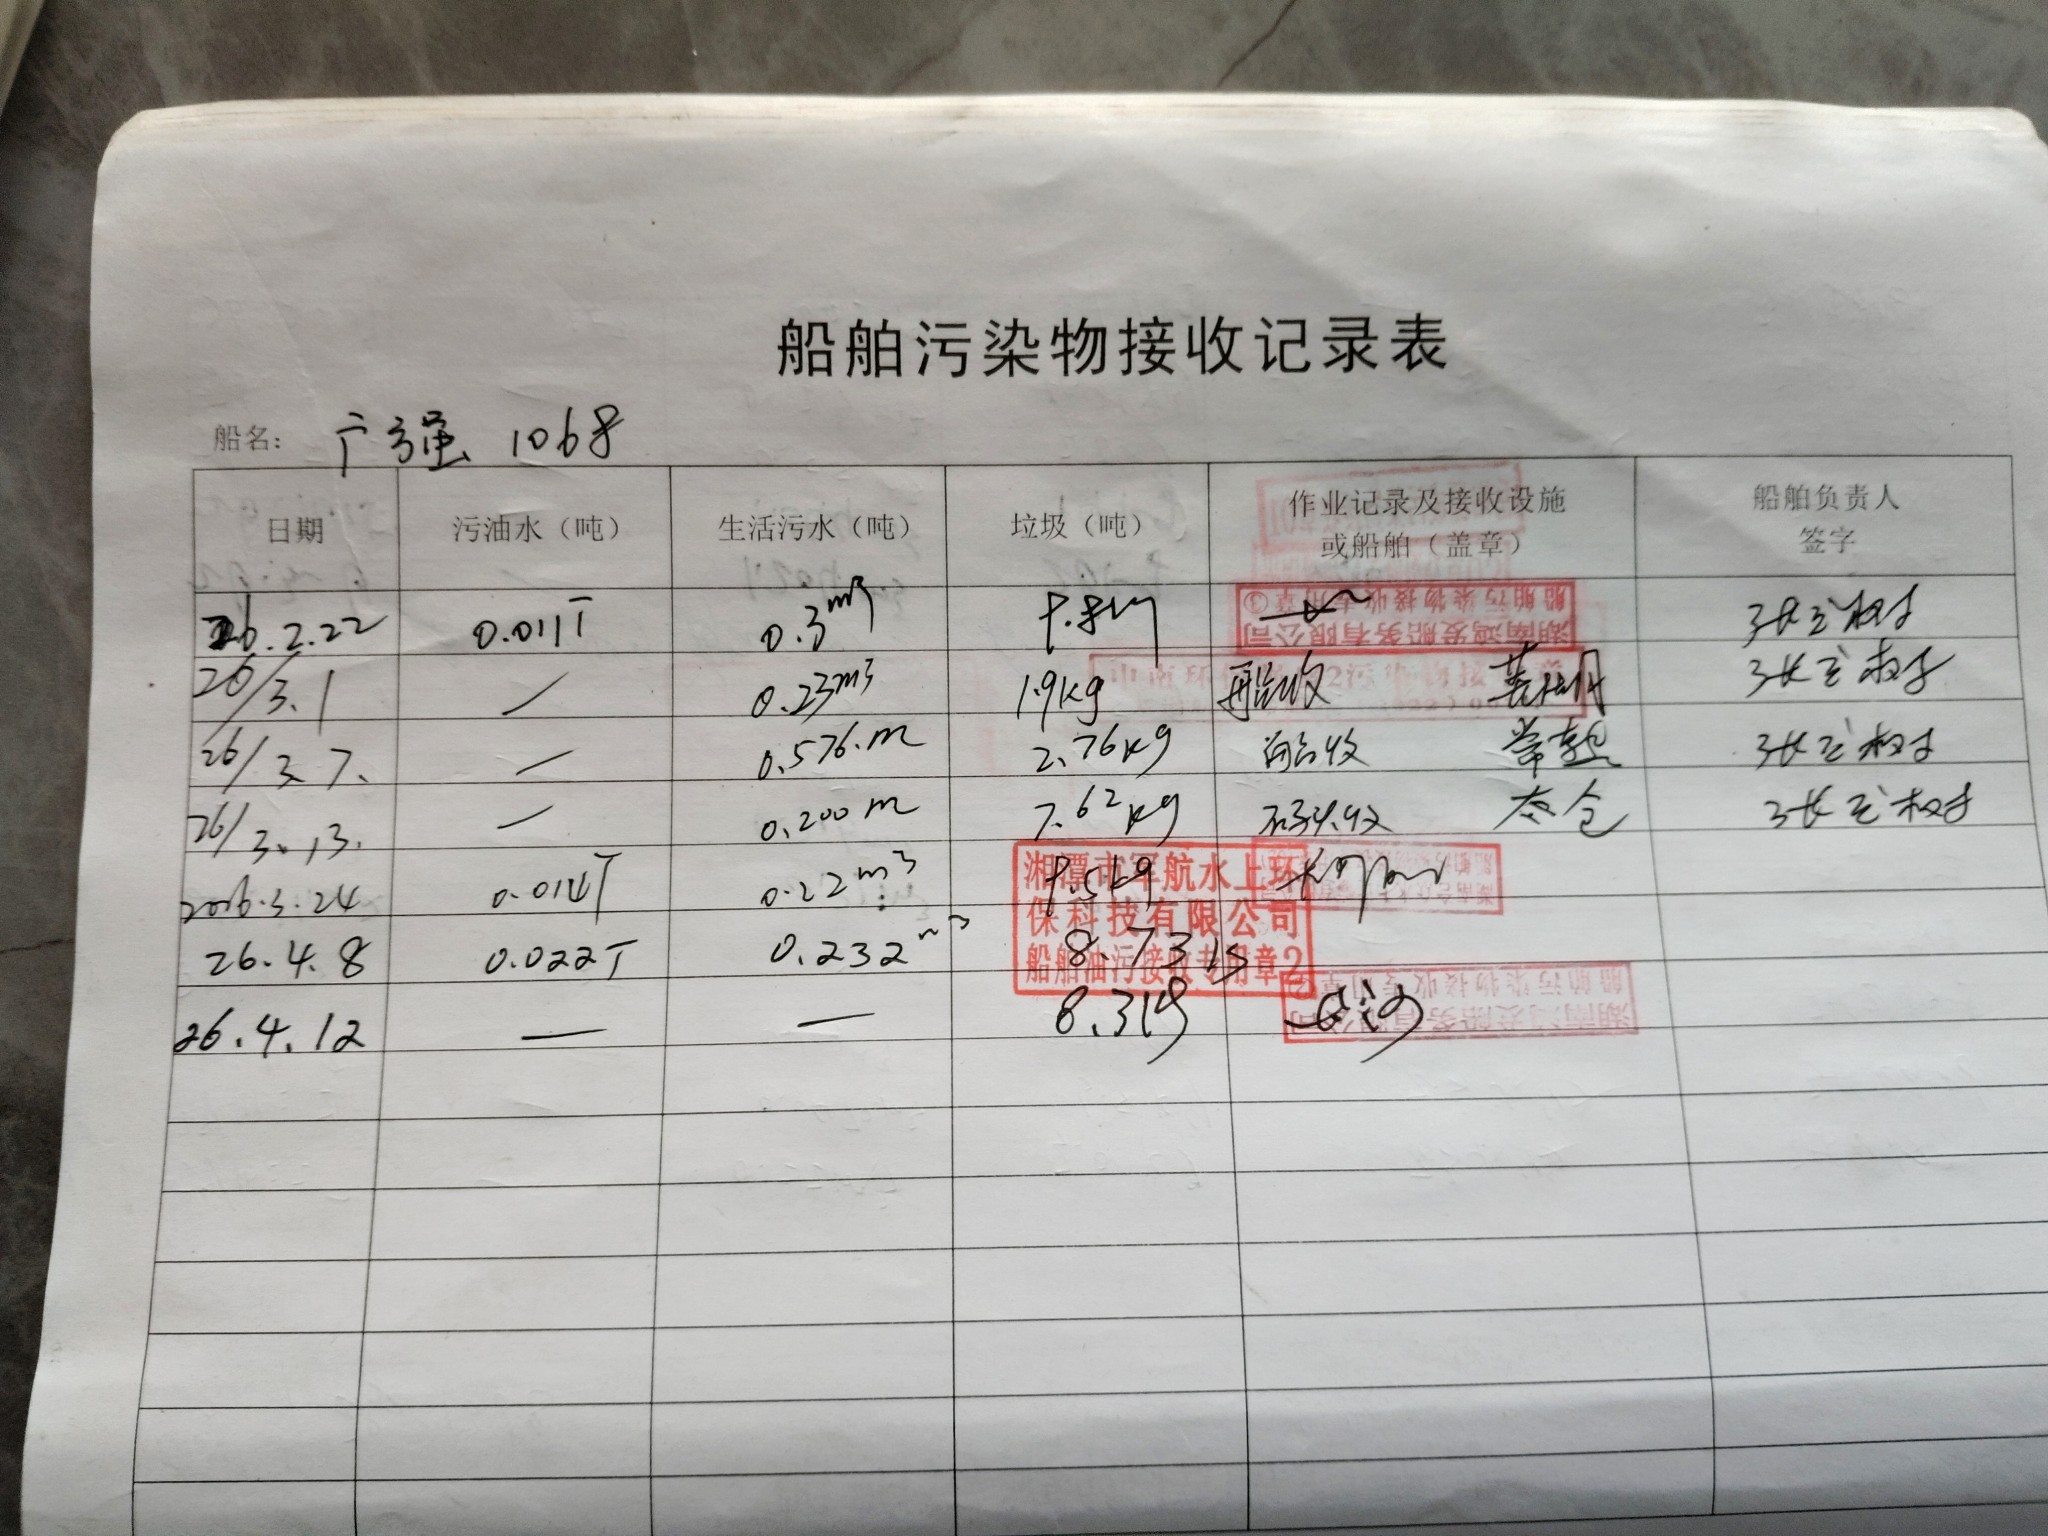 船舶污染物接收记录表
船名: 广强 1068
日期 污油水（吨） 生活污水（吨） 垃圾（吨） 作业记录及接收设施或船舶（盖章） 船舶负责人签字
26.2.22 0.011T 0.3m³
湖南鸿发船务有限公司
船舶污染物接收专用章③
26/3.1 / 0.23m³ 1.9kg 船收
26/3.7. / 0.576.m 2.76kg 船收 常熟
26/3.13. / 0.200m 7.62kg 码头收 太仓
2026.3.24 0.014T 0.22m³
湘潭市军航水上环
保科技有限公司
船舶油污接收专用章2
26.4.8 0.022T 0.232m³ 8.73
26.4.12 — — 8.31kg
船舶污染物接收专用章②